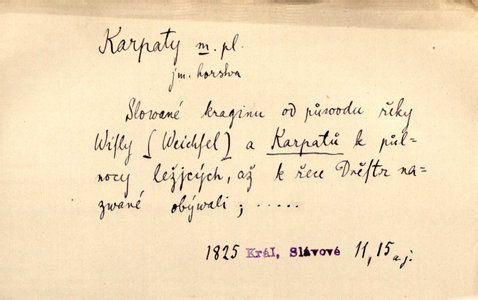 Karpaty m. pl.
jm. horstva
Slowané kraginu od půwodu řéky
Wisly (Weichsel) a Karpatů k půl-
nocy ležjcých, až k řece Dněstr na-
zwané obýwali; .....
1825 Král, Slávové 11, 15 a j.